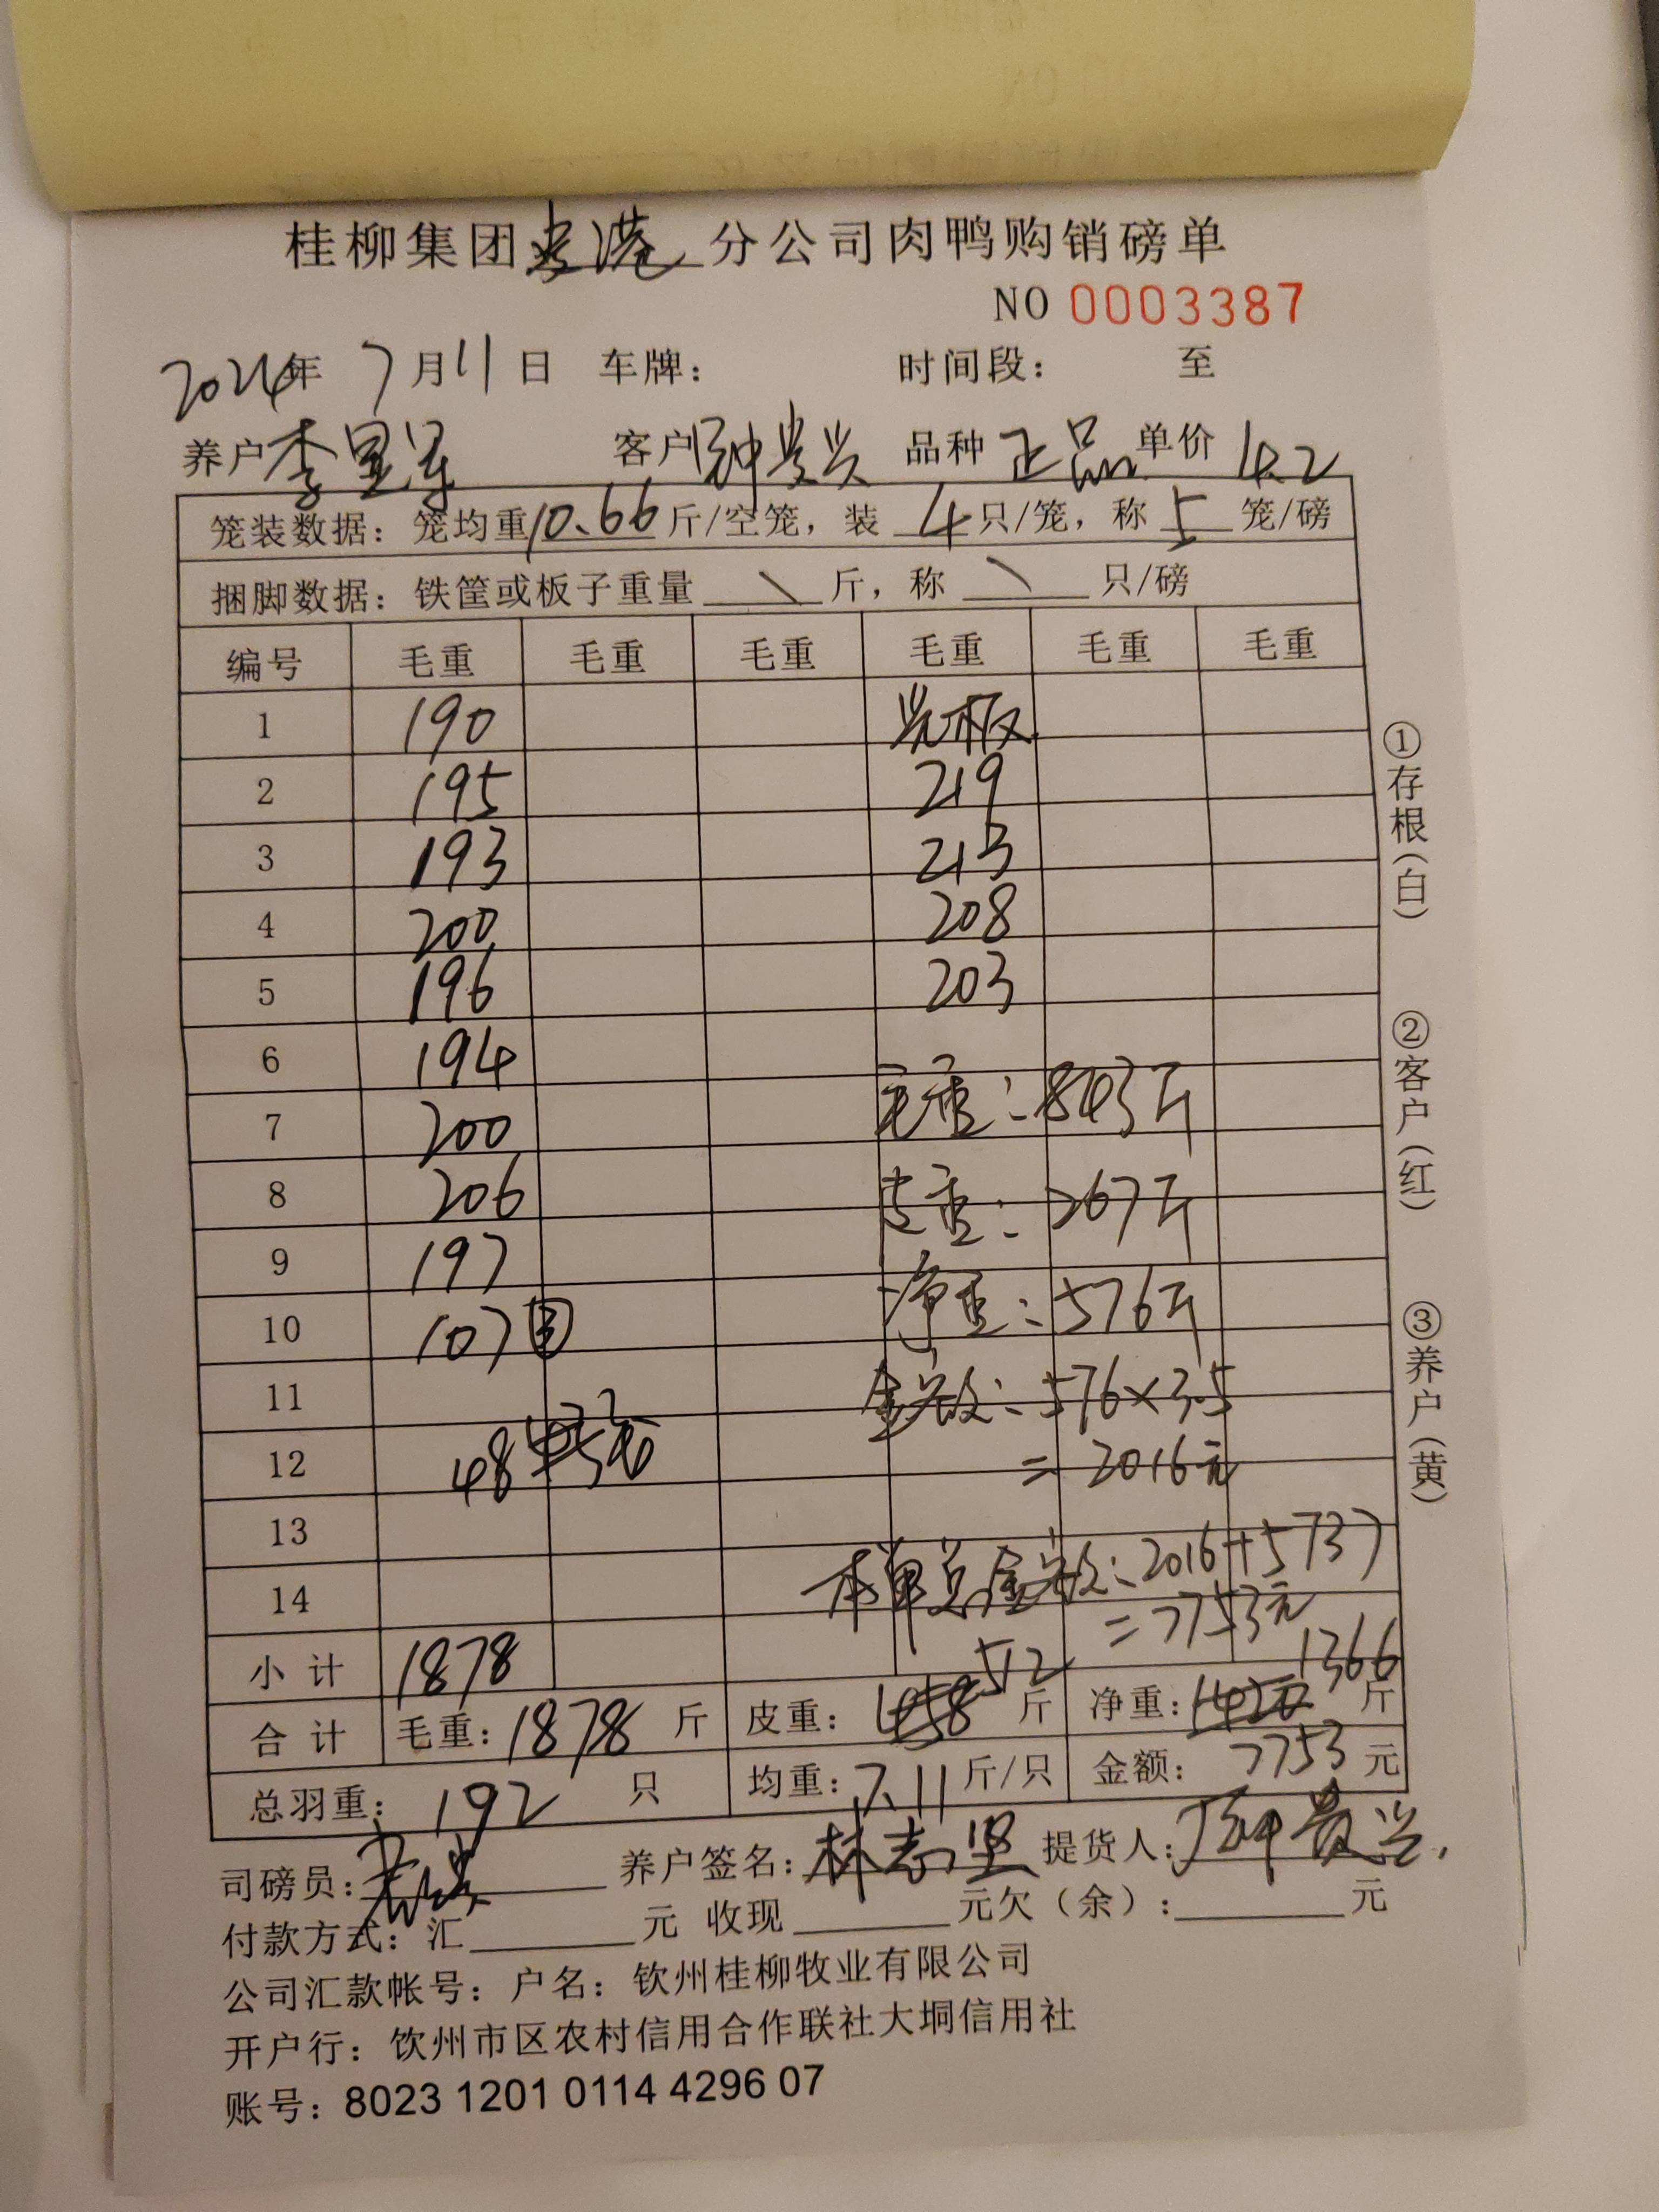 桂柳集团贵港分公司肉鸭购销磅单
NO 0003387
2024年 7月11日 车牌： 时间段： 至
养户李 客户钟贵兴 品种正品 单价4.2
笼装数据：笼均重10.66斤/空笼，装4只/笼，称5笼/磅
捆脚数据：铁筐或板子重量\斤，称\只/磅
编号 毛重 毛重 毛重 毛重 毛重 毛重
1 190 光板
2 195 219
3 193 213
4 200 208
5 196 203
6 194 毛重：843斤
7 200
8 206 皮重：267斤
9 197 净重：576斤
10 107③
11 金数：576×3.5
12 48 = 2016元
13 本单总金数：2016+5737
14 =7753元
小计 1878
合计 毛重：1878斤 皮重：458 512斤 净重：1420 1366斤
总羽重：192只 均重：7.11斤/只 金额：7753元
司磅员： 养户签名：林志坚 提货人：钟贵兴
付款方式：汇 元 收现 元欠（余）： 元
公司汇款帐号：户名：钦州桂柳牧业有限公司
开户行：饮州市区农村信用合作联社大垌信用社
账号：8023 1201 0114 4296 07
①存根（白）
②客户（红）
③养户（黄）